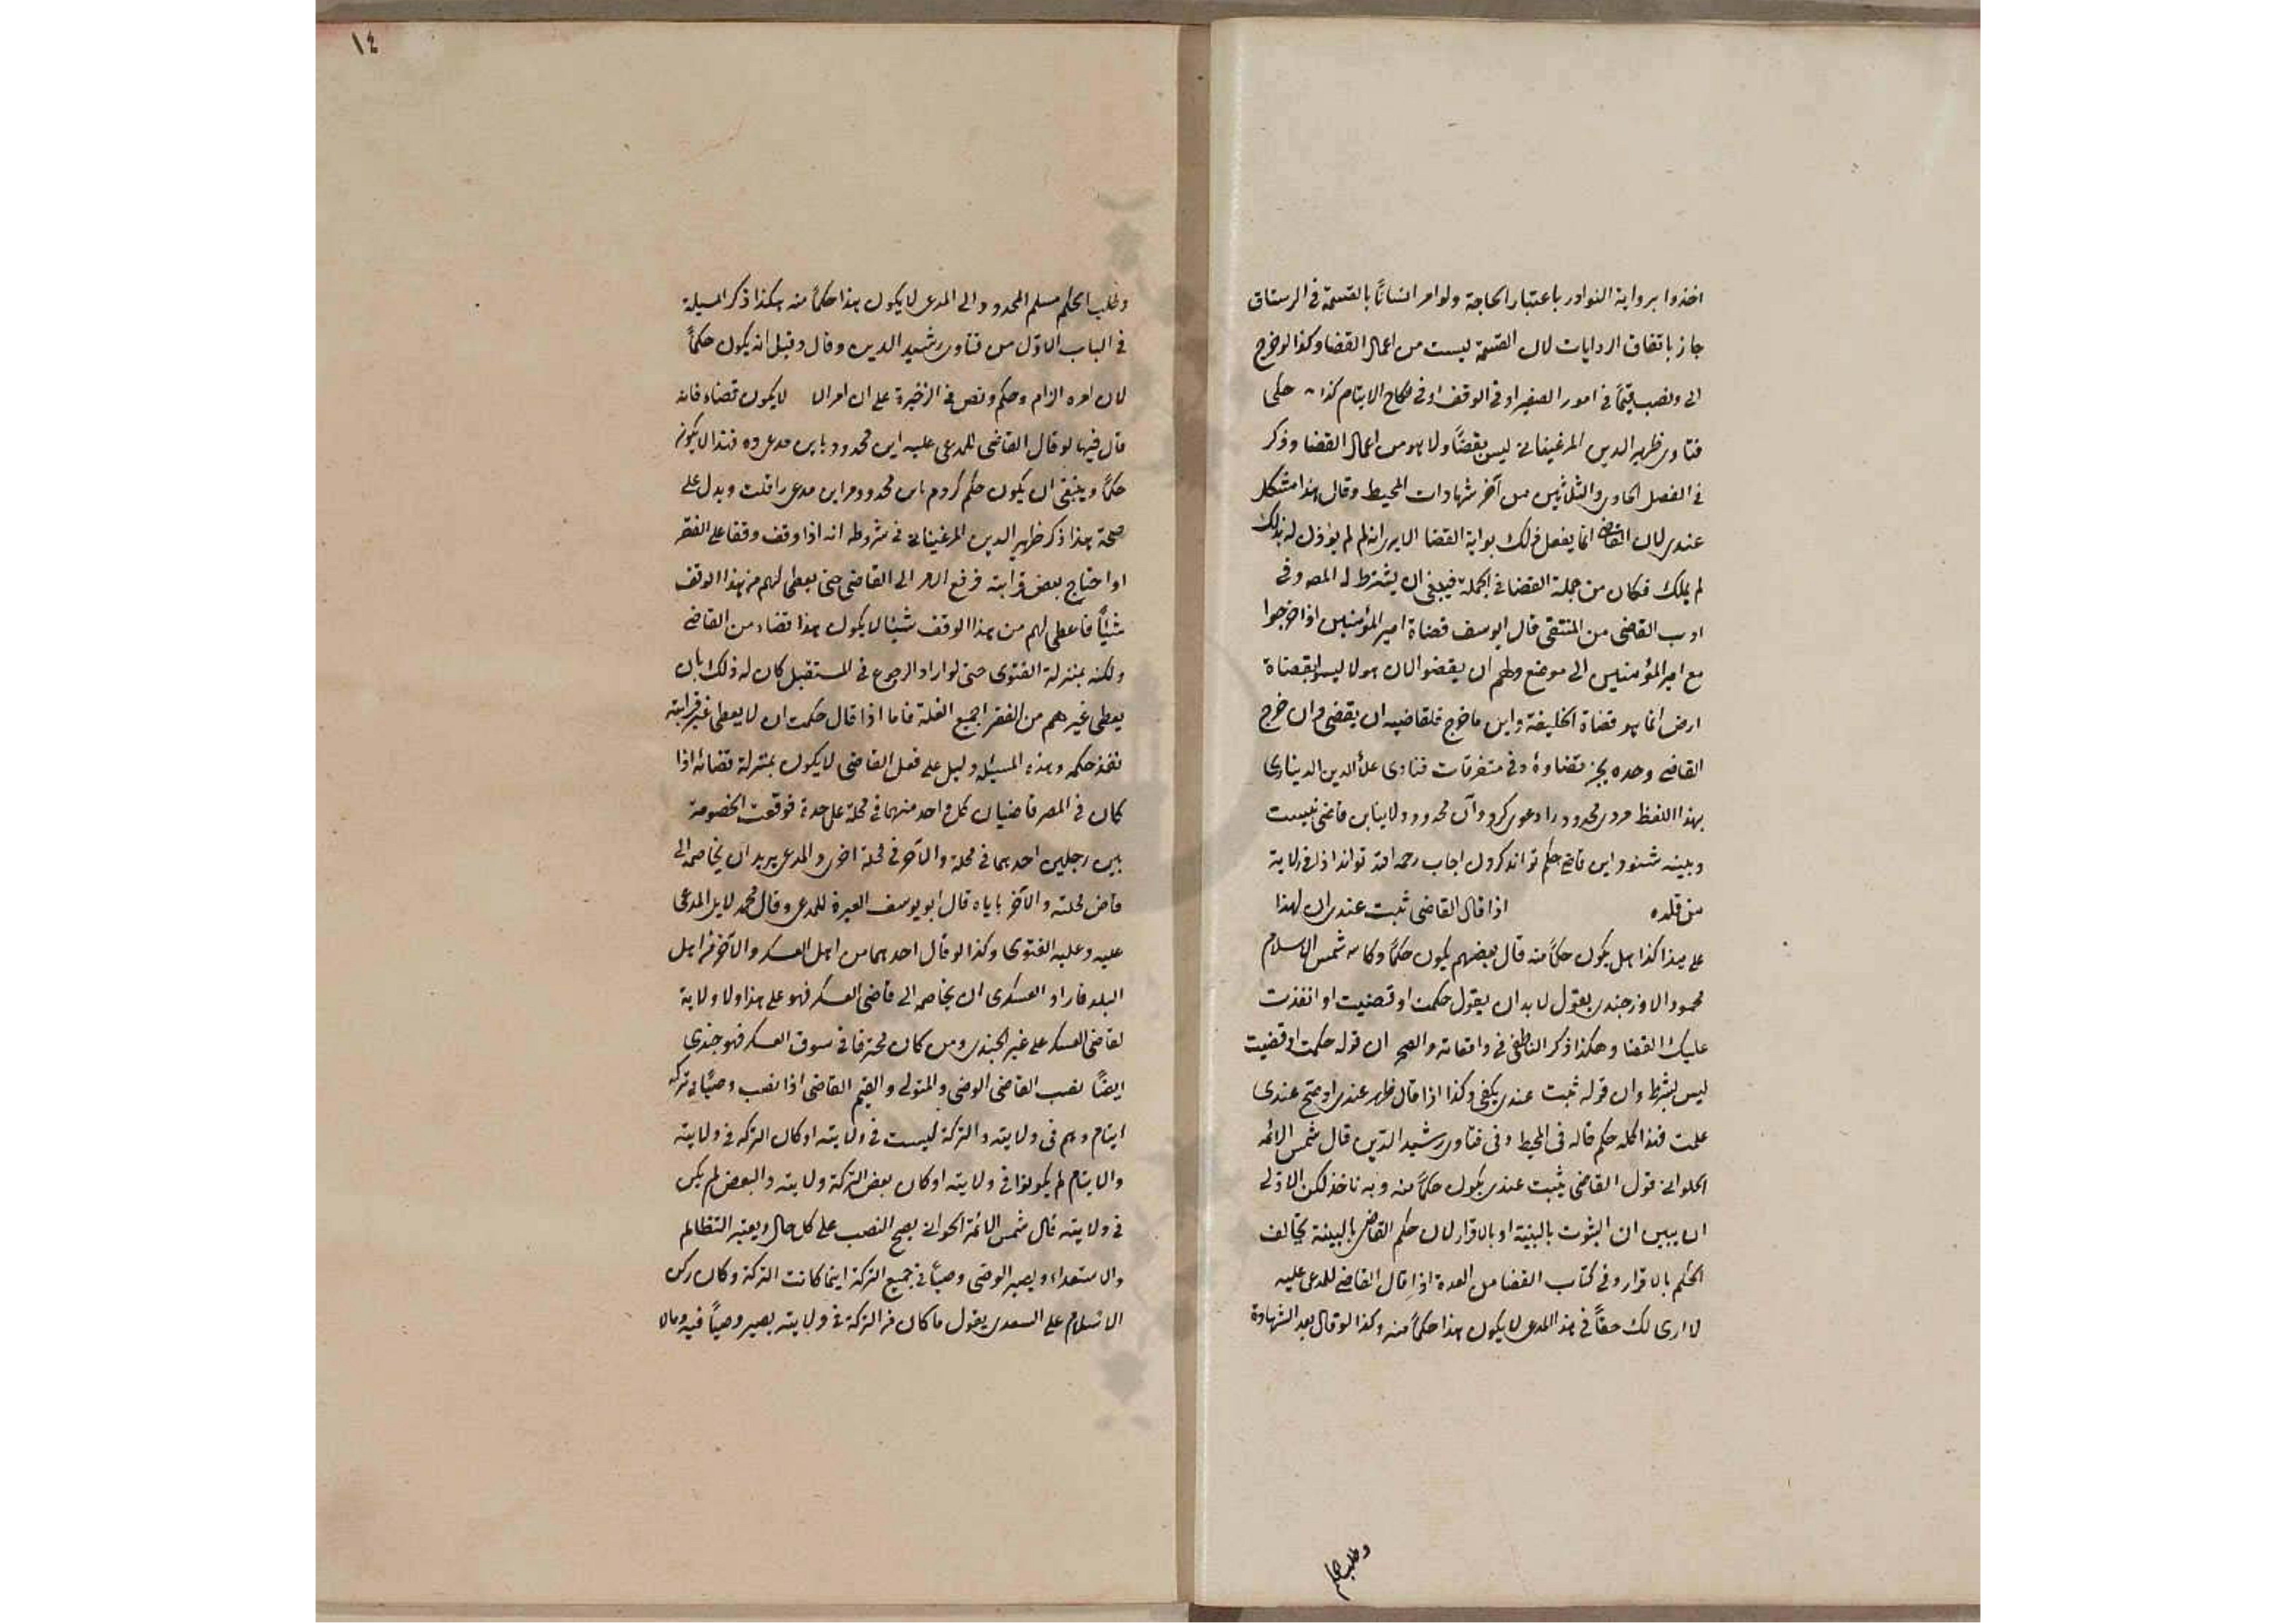 اخذوا برواية النوادر باعتبار الحاجة ولو امر انسانًا بالقسمة فى الرستاق
جاز باتفاق الروايات لان القسمة ليست من اعمال القضا وكذا لو خرج
الى ونصب قيمًا فى امور الصغير او فى الوقف او فى نكاح الايتام كذا حكى
فتاوى ظهير الدين المرغينانى ليس بقضاً ولا هو من اعمال القضا وذكر
فى الفصل الحادى والثلاثين من آخر شهادات المحيط وقال هذا مشكل
عندى لان القاضى انما يفعل ذلك بولية القضا الا يرى انه لم لم يؤذن له بذلك
لم يملك فكان من جملة القضا فى الجملة فينبغى ان يشترط له المصر وفى
ادب القاضى من المنتقى قال ابو يوسف قضاة امير المؤمنين اذا خرجوا
مع امير المؤمنين الى موضع ولهم ان يقضوا لان هولا ليسوا بقضاة
ارض انما هو قضاة الخليفة واين ما خرج فلقاضيه ان يقضى وان خرج
القاضى وحده يجز قضاوهٔ وفى متفرقات فتاوى علأ الدين الدينارى
بهذا اللفظ مردى محدود را دعوى كرد وآن محدود در ولايت اين قاضى نيست
وبينه شنود اين قاضى حكم تواند كردن اجاب رحمه الله تواند اذا فى ولاية
من قلده اذا قال القاضى ثبت عندى ان لهذا
على هذا كذا هل يكون حكمًا منه قال بعضهم يكون حكمًا وكان شمس الاسلام
محمود الاوزجندى يقول لا بد ان يقول حكمت او قضيت او انفذت
عليك القضا وهكذا ذكر الناطفى فى واقعاته والصح ان قوله حكمت او قضيت
ليس بشرط وان قوله ثبت عندى يكفى وكذا اذا قال ظهر عندى او صح عندى
علمت فهذا كله حكم قاله فى المحيط وفى فتاوى رشيد الدين قال شمس الائمه
الحلوانى قول القاضى ثبت عندى يكون حكمًا منه وبه ناخذ لكن الاولى
ان يبين ان الثبوت بالبينة او بالاقرار لان حكم القاضى بالبينة يخالف
الحكم بالاقرار وفى كتاب القضا من العدة اذا قال القاضى للمدعى عليه
لا ارى لك حقاً فى هذا المدعى لا يكون هذا حكمًا منه وكذا لو قال بعد الشهادة
وطلب الحكم
١٤
وطلب الحكم مسلم المحدود الى المدعى لا يكون هذا حكمًا منه هكذا ذكر المسيلة
فى الباب الاول من فتاوى رشيد الدين وقال وقيل انه يكون حكمًا
لان امره الزام وحكم ونص فى الذخيرة على ان امر الا لا يكون قضاء فانه
قال فيها لو قال القاضى للمدعى عليه اين محدود باين مدعى ده فهذا لا يكون
حكمًا وينبغى ان يكون حكم كردم باين محدود مر اين مدعى را قلت ويدل على
صحة هذا ذكر ظهير الدين المرغينانى فى شروطه انه اذا وقف وقفا على الفقر
او احتاج بعض قرابته فرفع الامر الى القاضى حتى يعطى لهم من هذا الوقف
شيئًا فاعطى لهم من هذا الوقف شيئا لا يكون هذا قضاء من القاضى
ولكنه بمنزلة الفتوى حتى لو اراد الرجوع فى المستقبل كان له ذلك بان
يعطى غيرهم من الفقرا جميع الغلة فاما اذا قال حكمت ان لا يعطى غير قرابته
نفذ حكمه وهذه المسيئلة دليل على فعل القاضى لا يكون بمنزلة قضائه اذا
كان فى المصر قاضيان كل واحد منهما فى محلة على حدة فوقعت الخصومة
بين رجلين احدهما فى محلة والآخر فى محلة اخرى والمدعى يريد ان يخاصمه الى
قاضى محلته والآخر ياباه قال ابو يوسف العبرة للمدعى وقال محمد لا بل المدعى
عليه وعليه الفتوى وكذا لو قال احدهما من اهل العسكر والآخر من اهل
البلد فاراد العسكرى ان يخاصمه الى قاضى العسكر فهو على هذا ولا ولاية
لقاضى العسكر على غير الجندى ومن كان محترفا فى سوق العسكر فهو جندى
ايضًا نصب القاضى الوصى والمتولى والقيم القاضى اذا نصب وصيًا فى تركه
ايتام وهم فى ولايته والتركة ليست فى ولايته او كان التركه فى ولايته
والايتام لم يكونوا فى ولايته او كان بعض التركة ولايته والبعض لم يكن
فى ولايته قال شمس الائمة الحلوانى يصح النصب على كل حال ويعتبر التظالم
والاستعداء ويصير الوصى وصيًا فى جميع التركة اينما كانت التركة وكان ركن
الاسلام على السعدى يقول ما كان من التركة فى ولايته يصير وصياً فيه وما لا